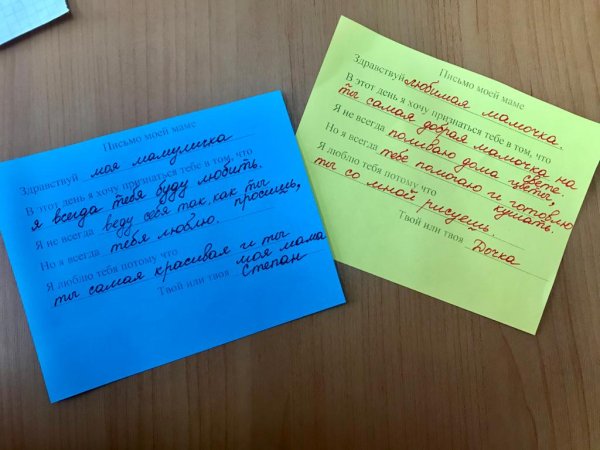 Письмо моей маме
Здравствуй моя мамуличка
В этот день я хочу признаться тебе в том, что
я всегда тебя буду любить.
Я не всегда веду себя так как ты просишь,
Но я всегда тебя люблю.
Я люблю тебя потому что
ты самая красивая и ты моя мама
Твой или твоя Степан
Письмо моей маме
Здравствуй любимая мамочка.
В этот день я хочу признаться тебе в том, что
ты самая добрая мамочка на свете.
Я не всегда поливаю дома цветы,
Но я всегда тебе помогаю и готовлю кушать.
Я люблю тебя потому что
ты со мной рисуешь.
Твой или твоя Дочка